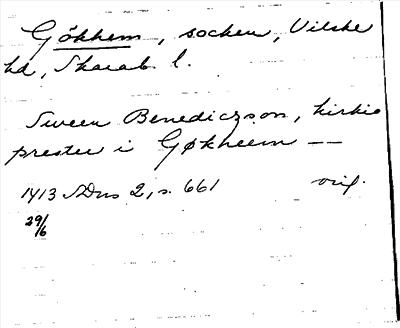 Gökhem, socken, Vilske
hd, Skarab. l.
Sween Benediczson, kirkio
prester i Gøkheem —
1413 SDns 2, s. 661 orig.
29/6